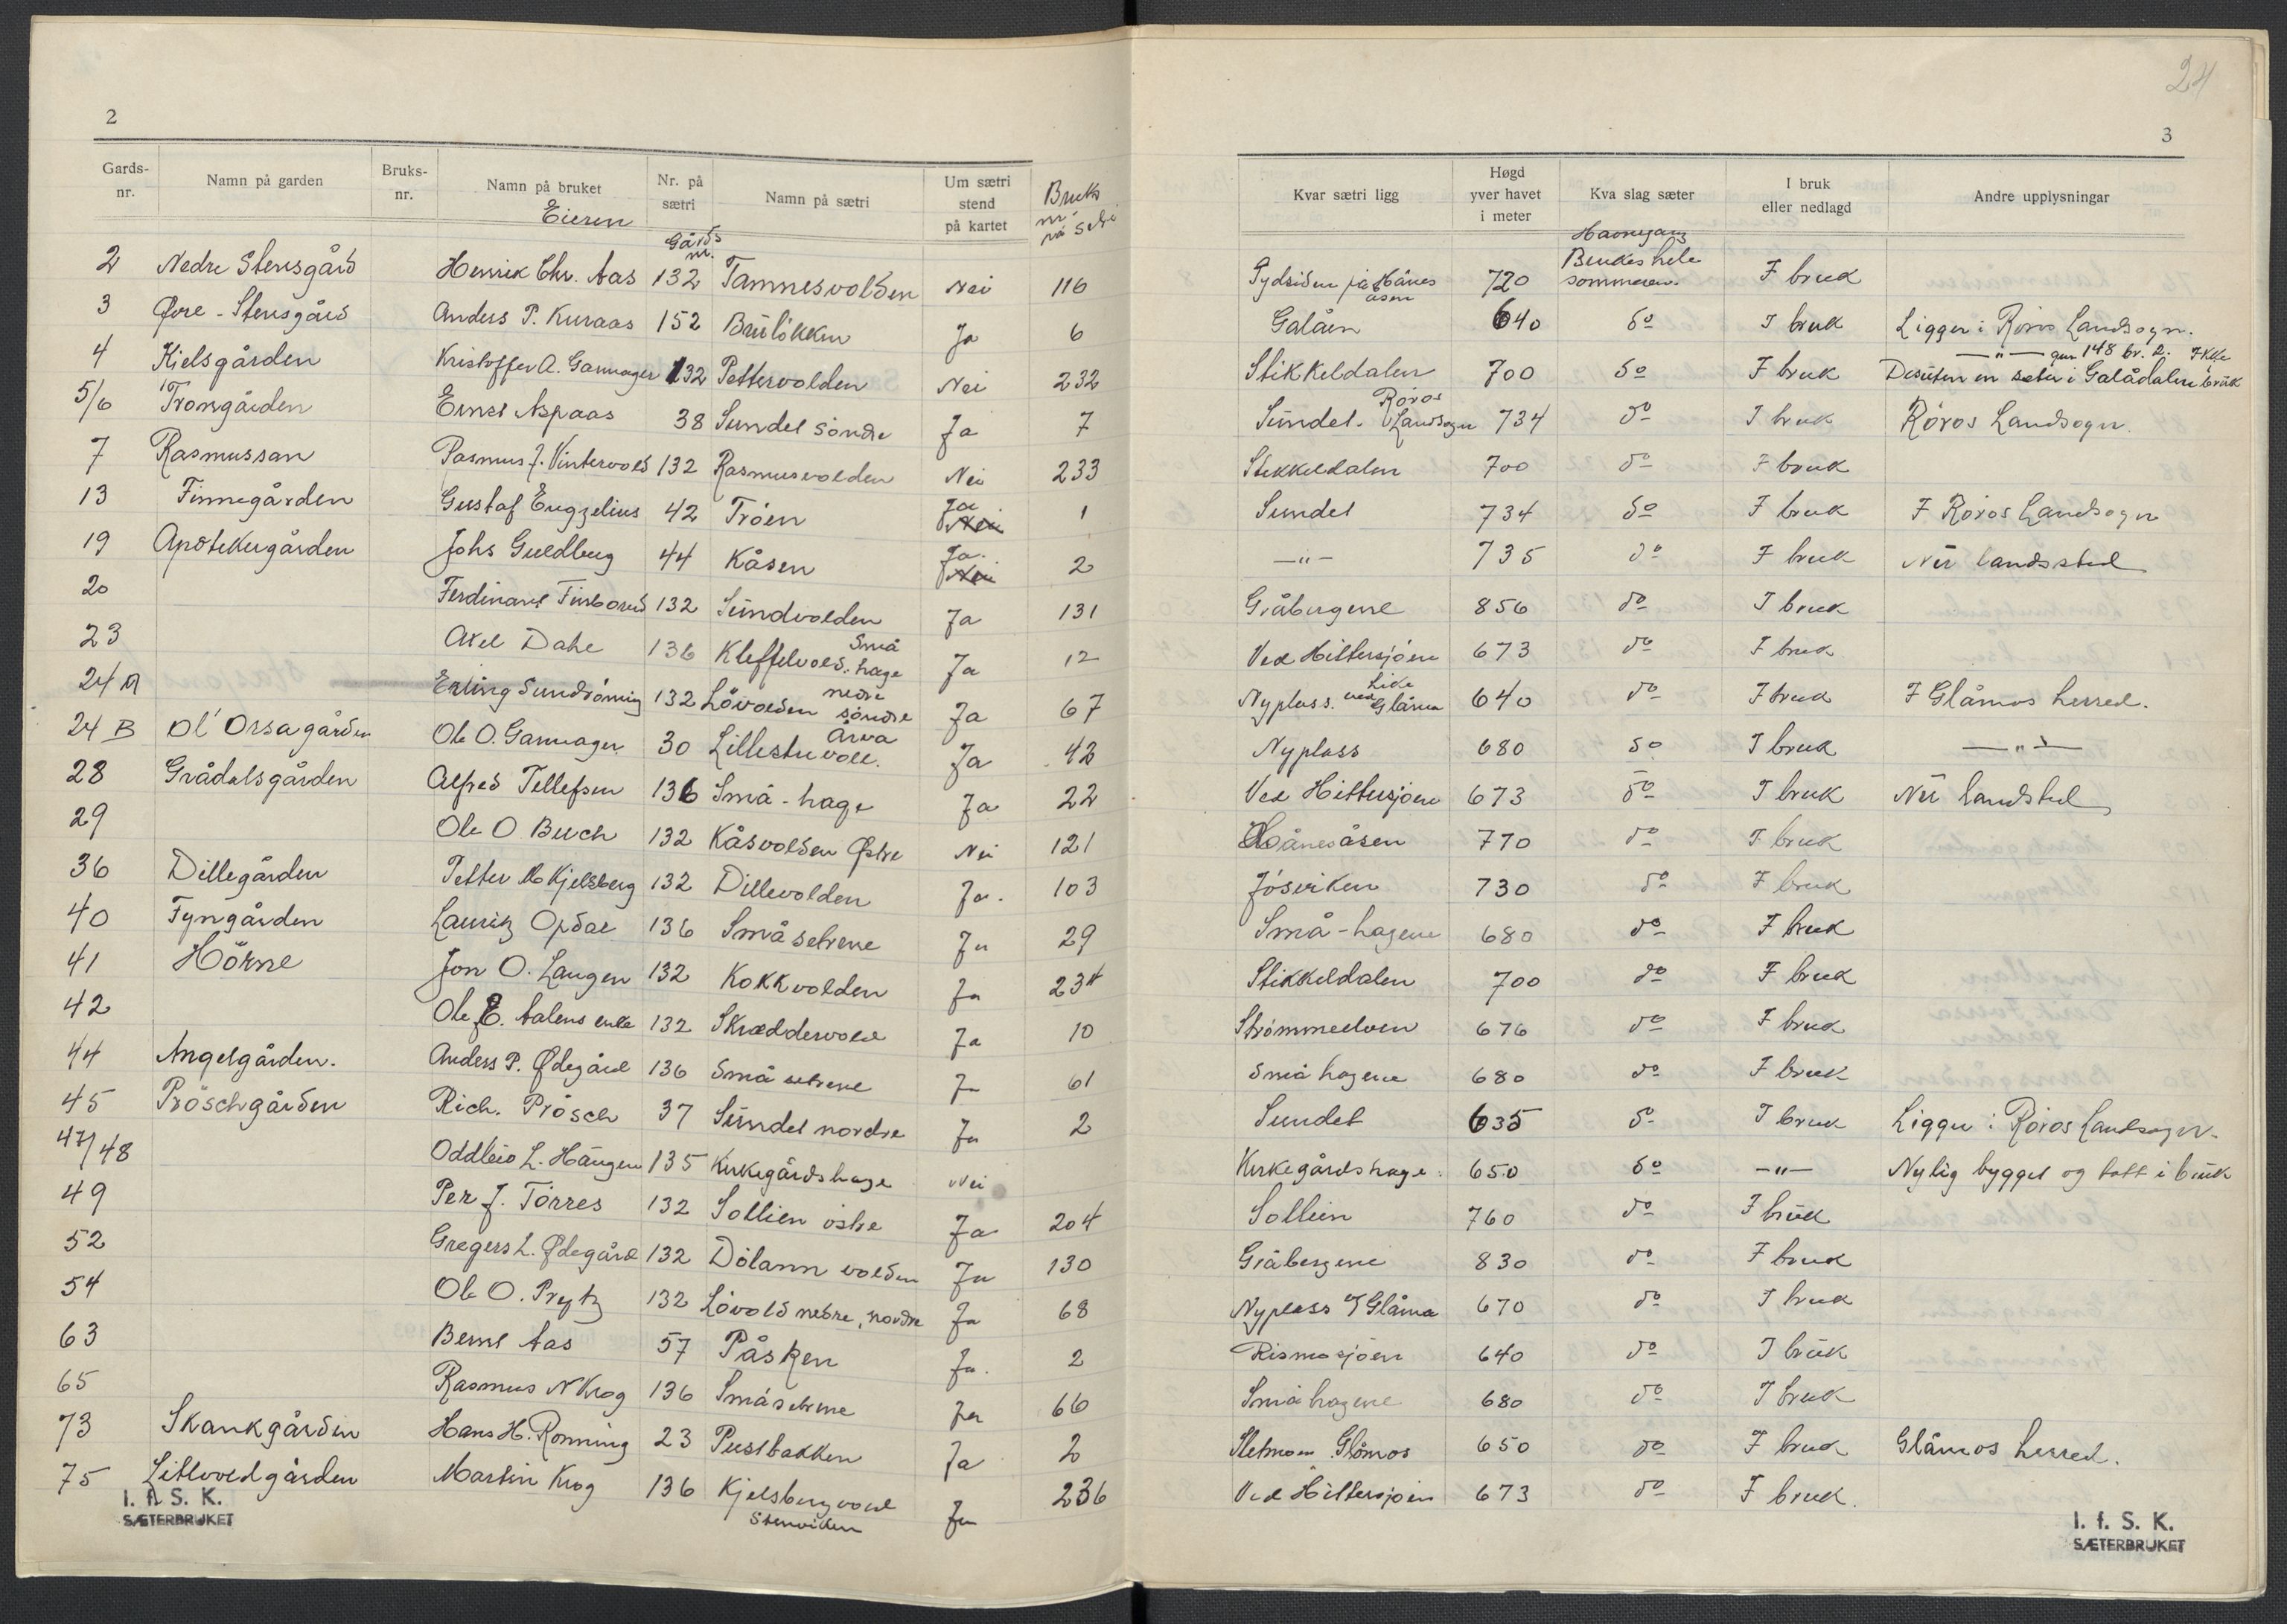 24
2
3
Gards-nr. Namn på garden Bruks-nr. Namn på bruket Nr. på sætri Namn på sætri Um sætri stend på kartet Bruks nr. på setri
Eieren Gårds nr.
Kvar sætri ligg Høgd yver havet i meter Kva slag sæter I bruk eller nedlagd Andre upplysningar
Havnegang
2 Nedre Stensgård Henrik Chr. Aas 132 Tamnesvolden Nei 116 Sydsiden på Hånesåsen 720 Brukes hele sommeren. I bruk
3 Øvre - Stensgård Anders P. Kuraas 152 Brulökken Ja 6 Galåen 640 do I bruk Ligger i Röros Landsogn.
4 Kjelsgården Kristoffer A. Garmager 132 Pettervolden Nei 232 Stikkeldalen 700 do I bruk —"— gnr 148 br. 2. Ikke Desuten en seter i Galådalen i bruk
5/6 Tronsgården Ernst Aspaas 38 Sundet söndre Ja 7 Sundet. Röros Landsogn 734 do I bruk Röros Landsogn.
7 Rasmussan Rasmus J. Vintervold 132 Rasmusvolden Nei 233 Stikkeldalen 700 do I bruk
13 Finnegården Gustaf Engzelius 42 Tröen Ja Nei 1 Sundet 734 do I bruk I Röros Landsogn
19 Apotekergården Johs Guldberg 44 Kåsen Ja. Nei 2 —"— 735 do I bruk Nu landsted
20 Ferdinand Finborud 132 Sundvolden Ja 131 Gråbergene 856 do I bruk
23 Axel Dahl 136 Kleffelvold. Små hage Ja 12 Ved Hittersjöen 673 do I bruk
24 A Erling Sundrönning 132 Lövolden nedre söndre Ja 67 Nyplass. Like ved Glåma 640 do I bruk I Glåmos herred.
24 B Ol' Orsagården Ole O. Garmager 30 Lillestuvoll. Orva Ja 42 Nyplass 680 do I bruk —"—
28 Grådalsgården Alfred Tellefsen 136 Små - hage Ja 22 Ved Hittersjöen 673 do I bruk Nu landsted
29 Ole O Buch 132 Kåsvolden Østre Nei 121 Hånesåsen 770 do I bruk
36 Dillegården Petter M Kjelsberg 132 Dillevolden Ja. 103 Jösviken 730 do I bruk
40 Fyngården Lauritz Opdal 136 Småsetrene Ja 29 Små - hagene 680 do I bruk
41 Hörne Jon O. Langen 132 Kokkvolden Ja 234 Stikkeldalen 700 do I bruk
42 Ole E. Aalens enke 132 Skreddervold Ja 10 Strömmeelven 676 do I bruk
44 Angelgården. Anders P. Ødegård 136 Små setrene Ja 61 Små hagene 680 do I bruk
45 Pröschgården Rich. Prösch 37 Sundet nordre Ja 2 Sundet 635 do I bruk Ligger i Röros Landsogn.
47/48 Oddleiv L. Haugen 135 Kirkegårdshage Nei Kirkegårdshage. 650 do —"— Nylig bygget og tatt i bruk
49 Per J. Törres 132 Sollien östre Ja 204 Sollien 760 do I bruk
52 Gregers L. Ødegård 132 Dölann volden Ja 130 Gråbergene 830 do I bruk
54 Ole O. Prytz 132 Lövold nedre, nordre Ja 68 Nyplass v/ Glåma 670 do I bruk
63 Bernt Aas 57 Påsken Ja. 2 Rismosjöen 640 do I bruk
65 Rasmus N Krog 136 Småsetrene Ja 66 Små hagene 680 do I bruk
73 Skankgården Hans H. Rönning 23 Pustbakken Ja 2 Sletmoen Glåmos 650 do I bruk Glåmos herred.
75 Litlvoldgården Martin Krog 136 Kjelsbergvold Stenviken Ja 236 Ved Hittersjöen 673 do I bruk.
I. f. S. K.
SÆTERBRUKET
I. f. S. K.
SÆTERBRUKET